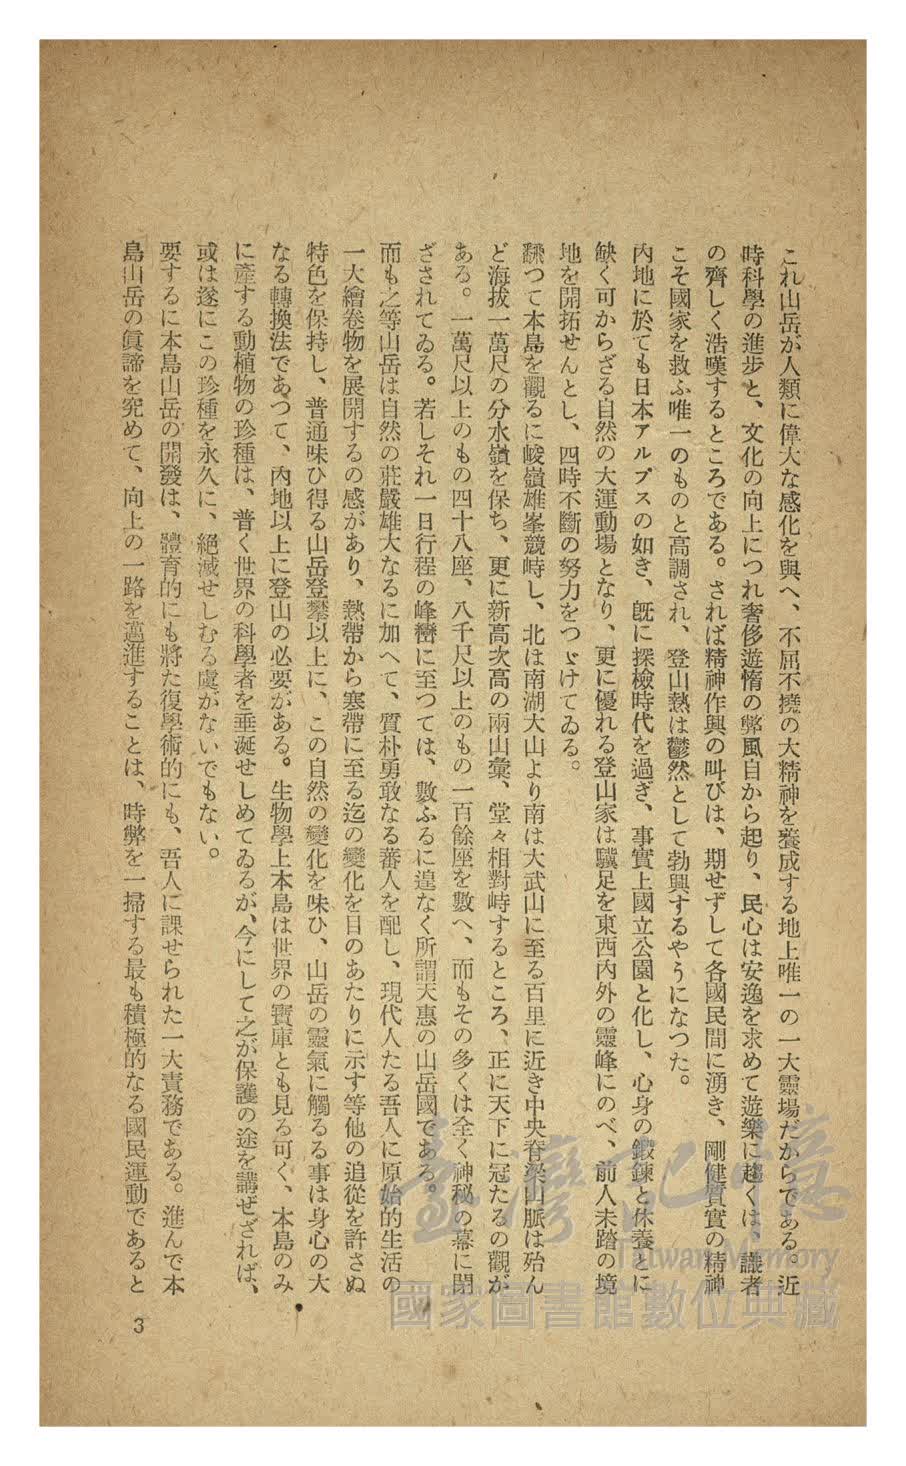 これ山岳が人類に偉大な感化を與へ、不屈不撓の大精神を養成する地上唯一の一大靈場だからである。近
時科學の進步と、文化の向上につれ奢侈遊惰の弊風自から起り、民心は安逸を求めて遊樂に趨くは、識者
の齊しく浩嘆するところである。されば精神作興の叫びは、期せずして各國民間に湧き、剛健質實の精神
こそ國家を救ふ唯一のものと高調され、登山熱は鬱然として勃興するやうになつた。
內地に於ても日本アルプスの如き、既に探檢時代を過ぎ、事實上國立公園と化し、心身の鍛鍊と休養とに
缺く可からざる自然の大運動場となり、更に優れる登山家は驥足を東西內外の靈峰にのべ、前人未踏の境
地を開拓せんとし、四時不斷の努力をつゞけてゐる。
飜つて本島を觀るに峻嶺雄峯競峙し、北は南湖大山より南は大武山に至る百里に近き中央脊梁山脈は殆ん
ど海拔一萬尺の分水嶺を保ち、更に新高次高の兩山彙、堂々相對峙するところ、正に天下に冠たるの觀が
ある。一萬尺以上のもの四十八座、八千尺以上のもの一百餘座を數へ、而もその多くは全く神秘の幕に閉
ざされてゐる。若しそれ一日行程の峰巒に至つては、數ふるに遑なく所謂天惠の山岳國である。
而も之等山岳は自然の莊嚴雄大なるに加へて、質朴勇敢なる蕃人を配し、現代人たる吾人に原始的生活の
一大繪卷物を展開するの感があり、熱帶から寒帶に至る迄の變化を目のあたりに示す等他の追從を許さぬ
特色を保持し、普通味ひ得る山岳登攀以上に、この自然の變化を味ひ、山岳の靈氣に觸るる事は身心の大
なる轉換法であつて、內地以上に登山の必要がある。生物學上本島は世界の寶庫とも見る可く、本島のみ
に產する動植物の珍種は、普く世界の科學者を垂涎せしめてゐるが、今にして之が保護の途を講ぜざれば、
或は遂にこの珍種を永久に、絕滅せしむる虞がないでもない。
要するに本島山岳の開發は、體育的にも將た復學術的にも、吾人に課せられた一大責務である。進んで本
島山岳の眞諦を究めて、向上の一路を邁進することは、時弊を一掃する最も積極的なる國民運動であると
3
臺灣記憶
Taiwan Memory
國家圖書館數位典藏